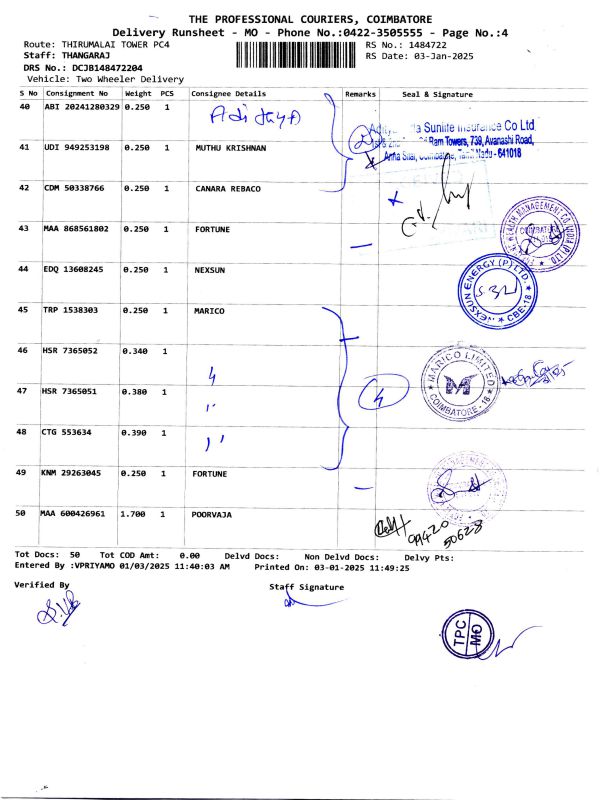 THE PROFESSIONAL COURIERS, COIMBATORE
Delivery Runsheet - MO - Phone No.:0422-3505555 - Page No.:4
Route: THIRUMALAI TOWER PC4
RS No.: 1484722
Staff: THANGARAJ
RS Date: 03-Jan-2025
DRS No.: DCJB148472204
Vehicle: Two Wheeler Delivery
S No Consignment No Weight PCS Consignee Details Remarks Seal & Signature
40 ABI 20241280329 0.250 1
Sunlife Insurance Co Ltd
Ram Towers, 739, Avanashi Road,
Anna Silai, Coimbatore, Tamil Nadu - 641018
41 UDI 949253198 0.250 1 MUTHU KRISHNAN
42 CDM 50338766 0.250 1 CANARA REBACO
43 MAA 868561802 0.250 1 FORTUNE
44 EDQ 13608245 0.250 1 NEXSUN
NEXSUN ENERGY (P) LTD. CBE-18
45 TRP 1538303 0.250 1 MARICO
46 HSR 7365052 0.340 1
MARICO LIMITED COIMBATORE - 18
4
47 HSR 7365051 0.380 1 "
48 CTG 553634 0.390 1 "
49 KNM 29263045 0.250 1 FORTUNE
50 MAA 600426961 1.700 1 POORVAJA
99420
50628
Tot Docs: 50 Tot COD Amt: 0.00 Delvd Docs: Non Delvd Docs: Delvy Pts:
Entered By :VPRIYAMO 01/03/2025 11:40:03 AM Printed On: 03-01-2025 11:49:25
Verified By
Staff Signature
TPC
MO